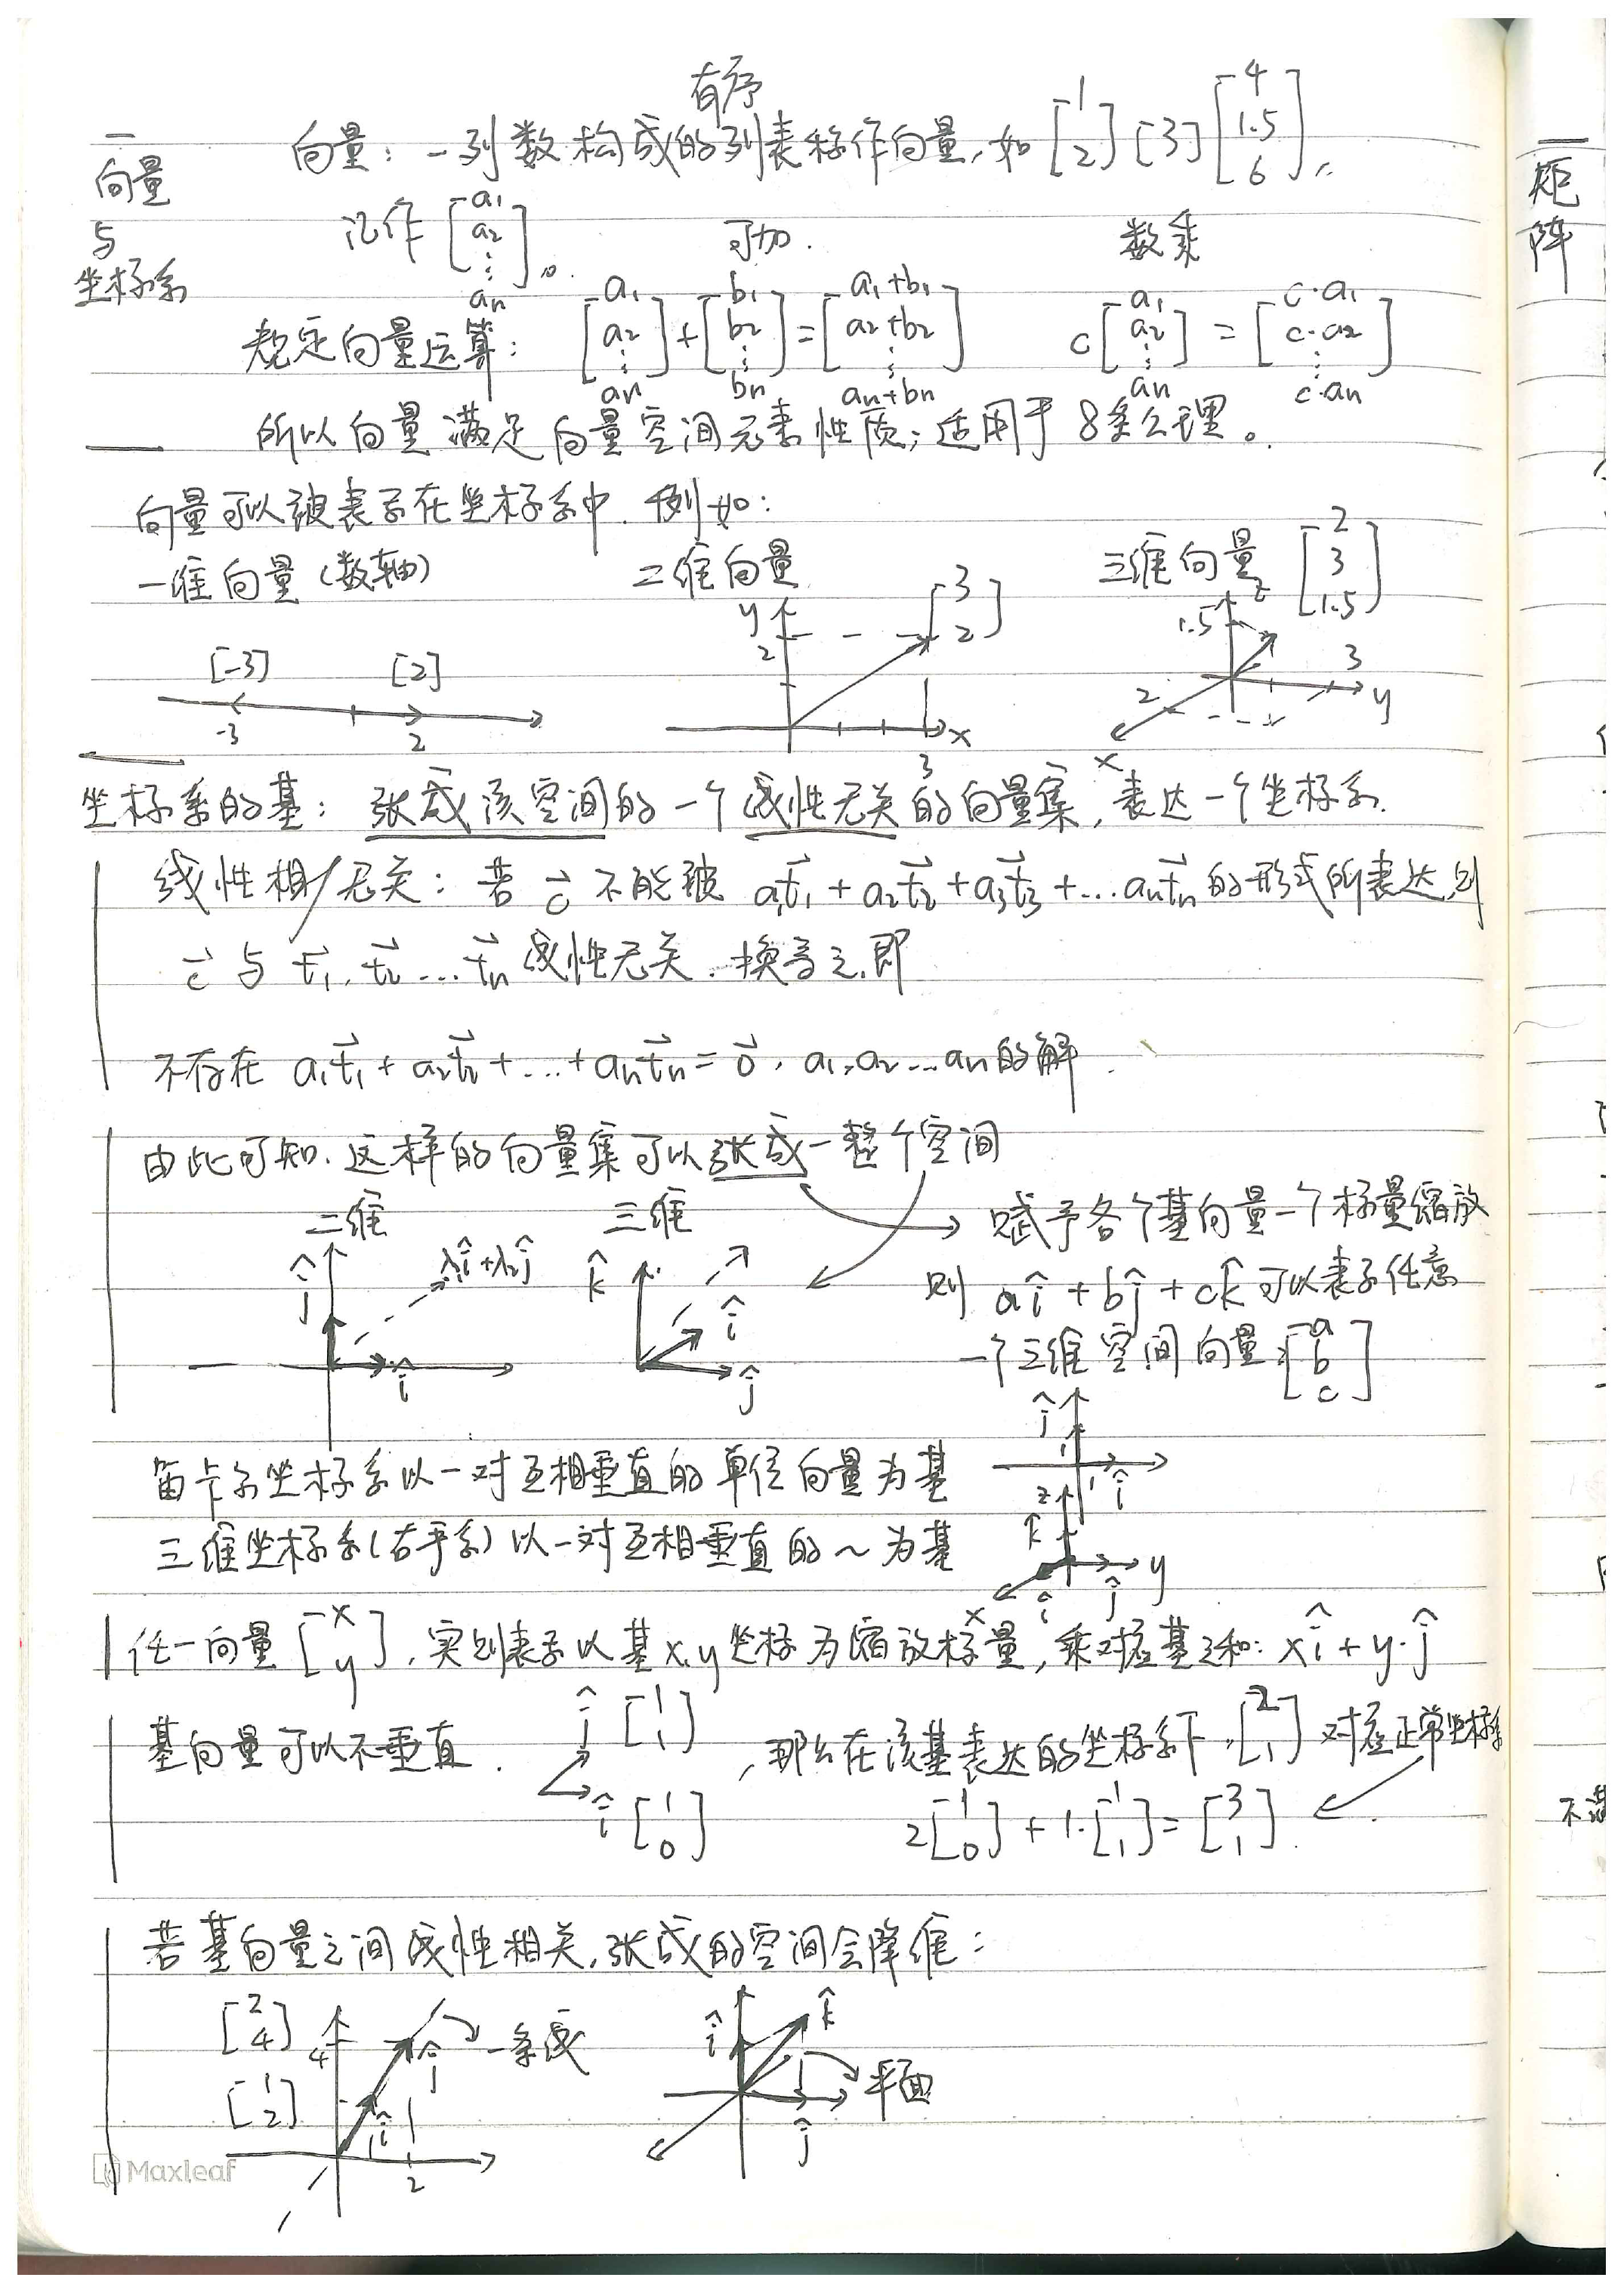 有序
一 向量与坐标系
向量：一列数构成的列表称作向量，如 [1 2] [3] [4 1.5 6]，
记作 [a1 a2 ⋮ an]。
可加. 数乘
规定向量运算： [a1 a2 ⋮ an] + [b1 b2 ⋮ bn] = [a1+b1 a2+b2 ⋮ an+bn] c[a1 a2 ⋮ an] = [c·a1 c·a2 ⋮ c·an]
所以向量满足向量空间元素性质；适用于8条公理。
向量可以被表示在坐标系中. 例如：
一维向量（数轴） 二维向量 三维向量 [2 3 1.5]
[-3] [2] -3 2
y 2 [3 2] x 3
z 1.5 3 y 2 x
坐标系的基：张成该空间的一个线性无关的向量集，表达一个坐标系.
线性相/无关：若 c⃗ 不能被 a1t⃗1 + a2t⃗2 + a3t⃗3 + ... ant⃗n 的形式所表达，则
c⃗ 与 t⃗1, t⃗2 ... t⃗n 线性无关. 换言之，即
不存在 a1t⃗1 + a2t⃗2 + ... + ant⃗n = 0⃗, a1, a2 ... an 的解.
由此可知. 这样的向量集可以张成一整个空间
二维 三维
赋予各个基向量一个标量缩放
ĵ λ1î+λ2ĵ î
k̂ î ĵ
则 aî + bĵ + ck̂ 可以表示任意
一个三维空间向量: [a b c]
笛卡尔坐标系以一对互相垂直的单位向量为基
ĵ 1 1 î
三维坐标系(右手系) 以一对互相垂直的 ~ 为基
z k̂ ĵ y î x
任一向量 [x y], 实则表示以基x,y坐标为缩放标量，乘对应基之和: xî + y·ĵ
基向量可以不垂直. ĵ [1 1] î [1 0] ，那么在该基表达的坐标系下，[2 1] 对应正常坐标系
2[1 0] + 1·[1 1] = [3 1].
若基向量之间线性相关，张成的空间会降维：
[2 4] 4 ĵ 一条线
[1 2] î 1 2
î k̂ ĵ 平面
Maxleaf
二 矩阵
不满